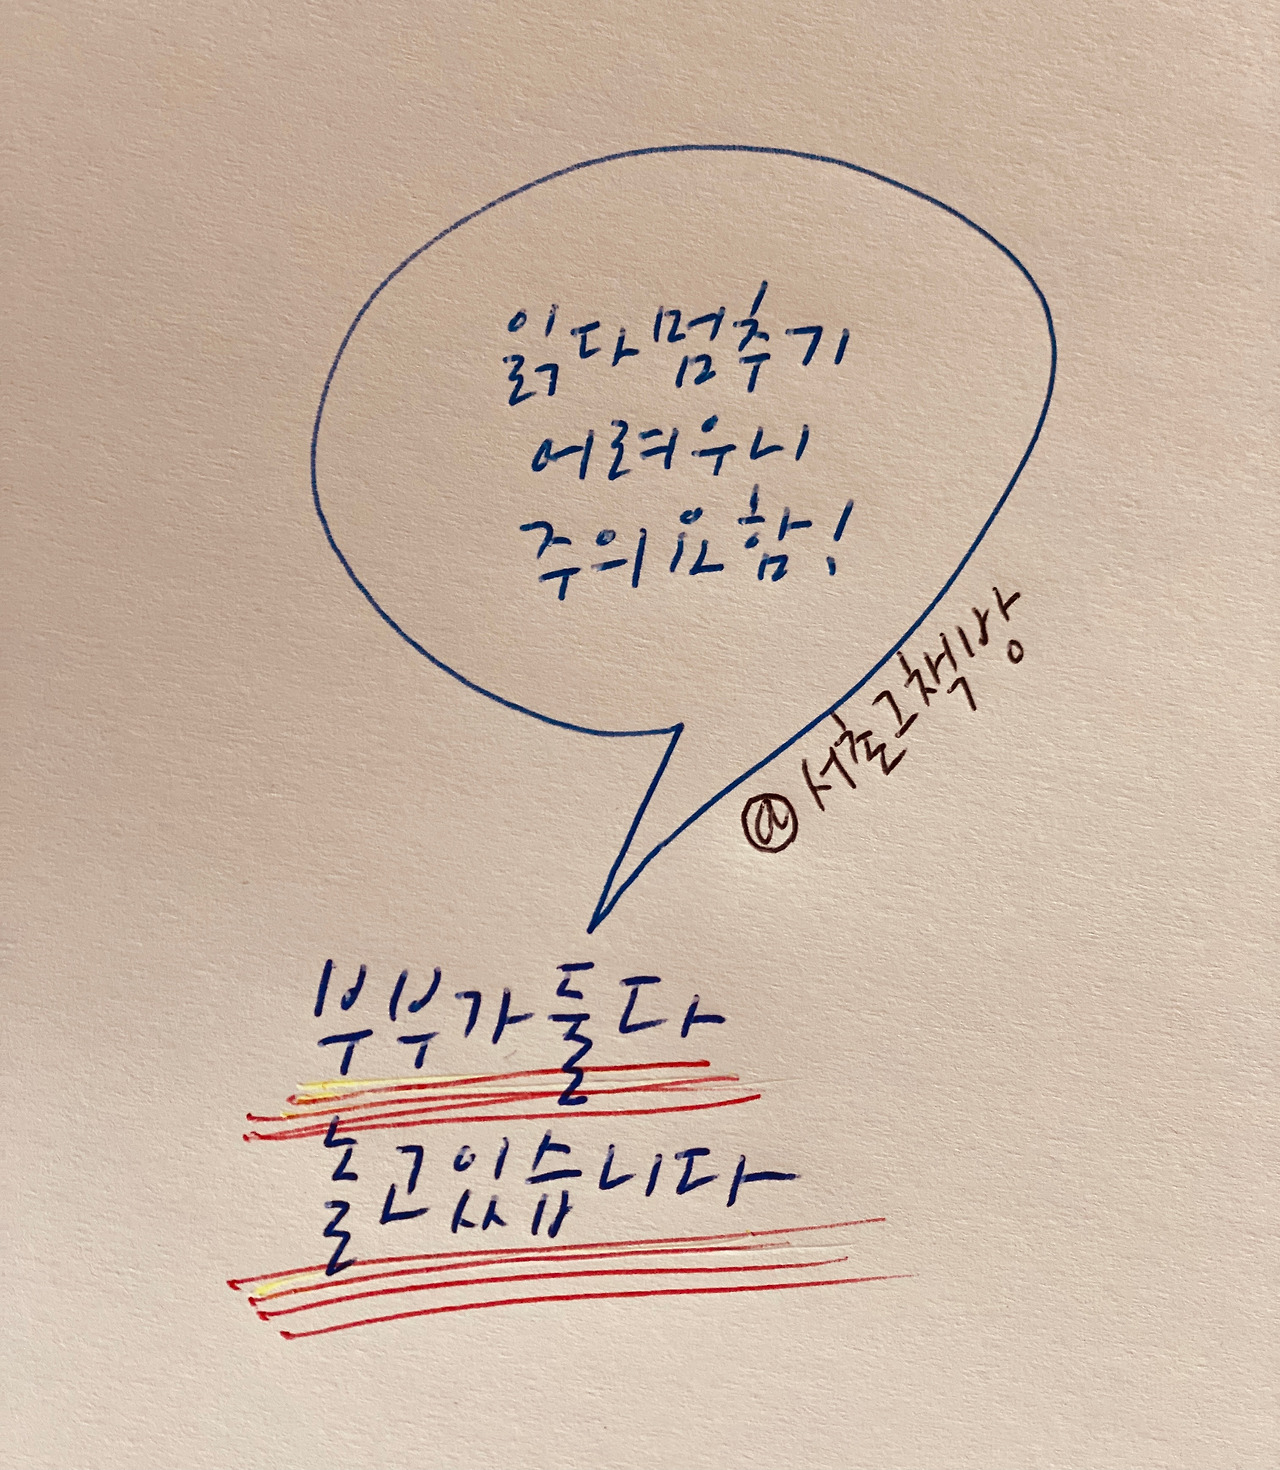 읽다 멈추기
어려우니
주의 요함!
@서촌그책방
부부가 둘다
놀고있습니다